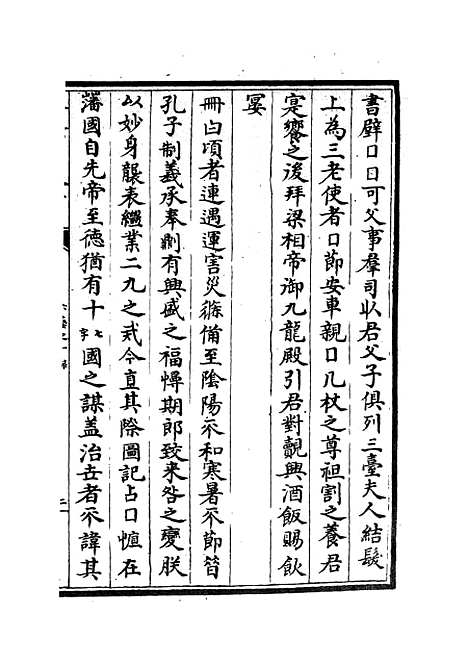 書壁口日可父事羣司以君父子俱列三臺夫人結髮
上為三老使者口節安車親口几杖之尊袒割之養君
寔饗之後拜梁相帝御九龍殿引君對覿興酒飯賜飲
宴
冊曰頃者連遇運害災𢓜備至陰陽不和寒暑不節笤
孔子制義承奉剛有興盛之福憚期郎致来咎之變朕
以妙身襲表繼業二九之戒今直其際圖記占口恒在
藩國自先帝至德猶有十七字國之謀盖治去者不諱其